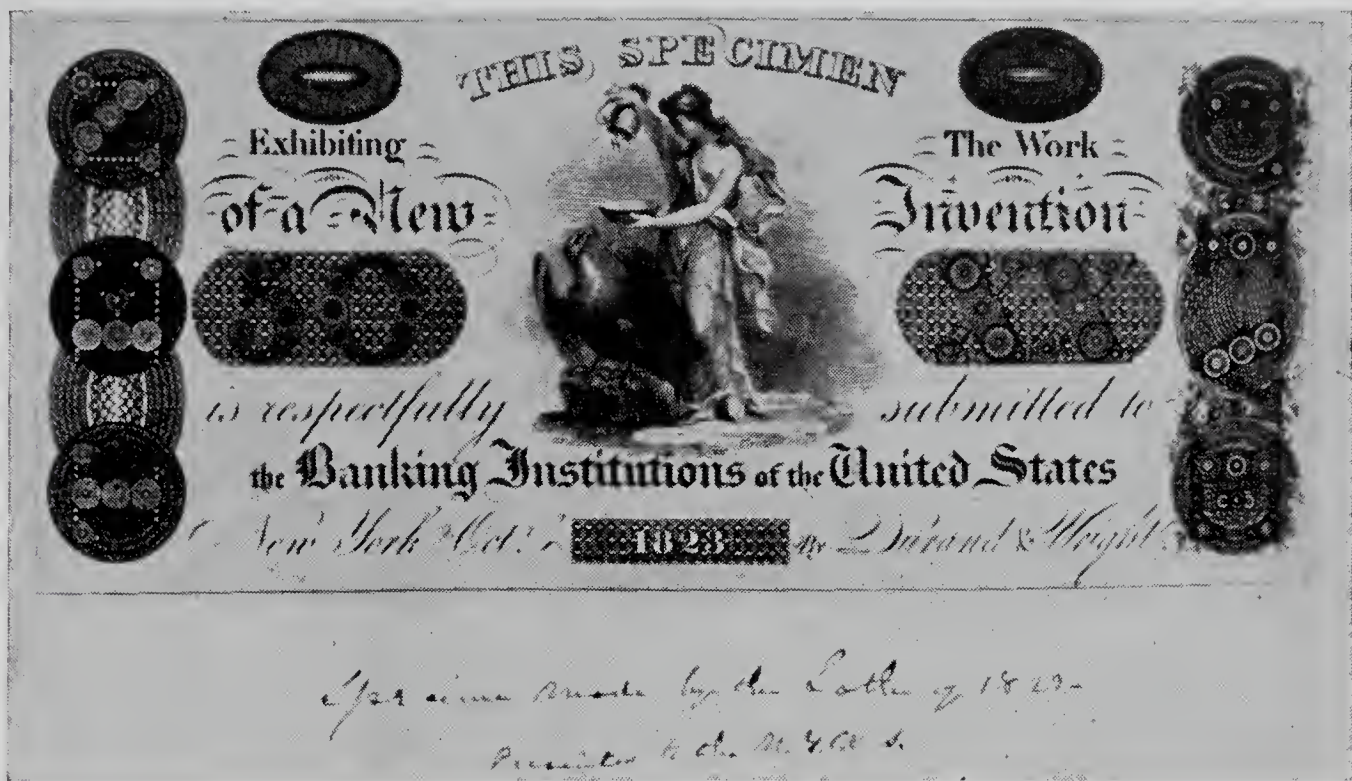 THIS SPECIMEN
Exhibiting The Work
of a New Invention
is respectfully submitted to
the Banking Institutions of the United States
New York Oct. 1823 By Durand & Wright
Specimen made by the Lathe of 1823
Presented to the N.Y.H.S.